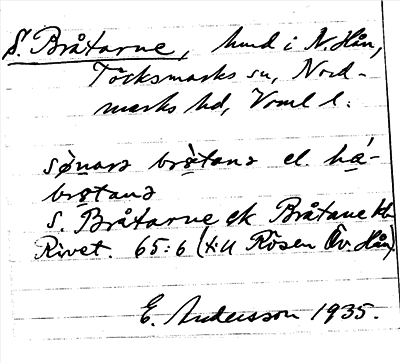 S. Bråtarne, hmd i N. Hån,
Töcksmarks sn, Nord-
marks hd, Vrml l.
sø̀narə brø̀tanə el. hǽ-
brøtanə
S. Bråtarne ek Bråtane hb
Rivet. 65:6 (till Rösen Öv. Hån).
E. Andersson 1935.